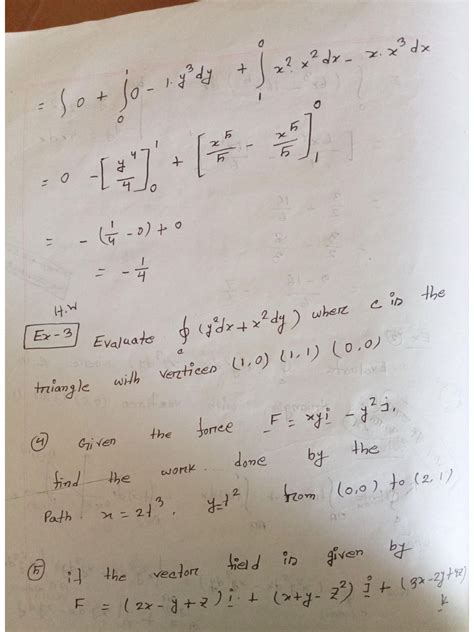 = ∫ 0 + ∫₀¹ 0 - 1·y³dy + ∫₁⁰ x²·x²dx - x·x³dx
= 0 - [y⁴/4]₀¹ + [x⁵/5 - x⁵/5]₁⁰
= - (1/4 - 0) + 0
= - 1/4
H.W
Ex-3 Evaluate ∮ (y²dx + x²dy) where c is the
triangle with vertices (1,0) (1,1) (0,0)
(4) Given the force F = xyi - y²j,
find the work done by the
Path x = 2t³, y=t² from (0,0) to (2,1)
(5) if the vector field is given by
F = (2x - y + z) i + (x+y - z²) j + (3x-2y+4z)
k